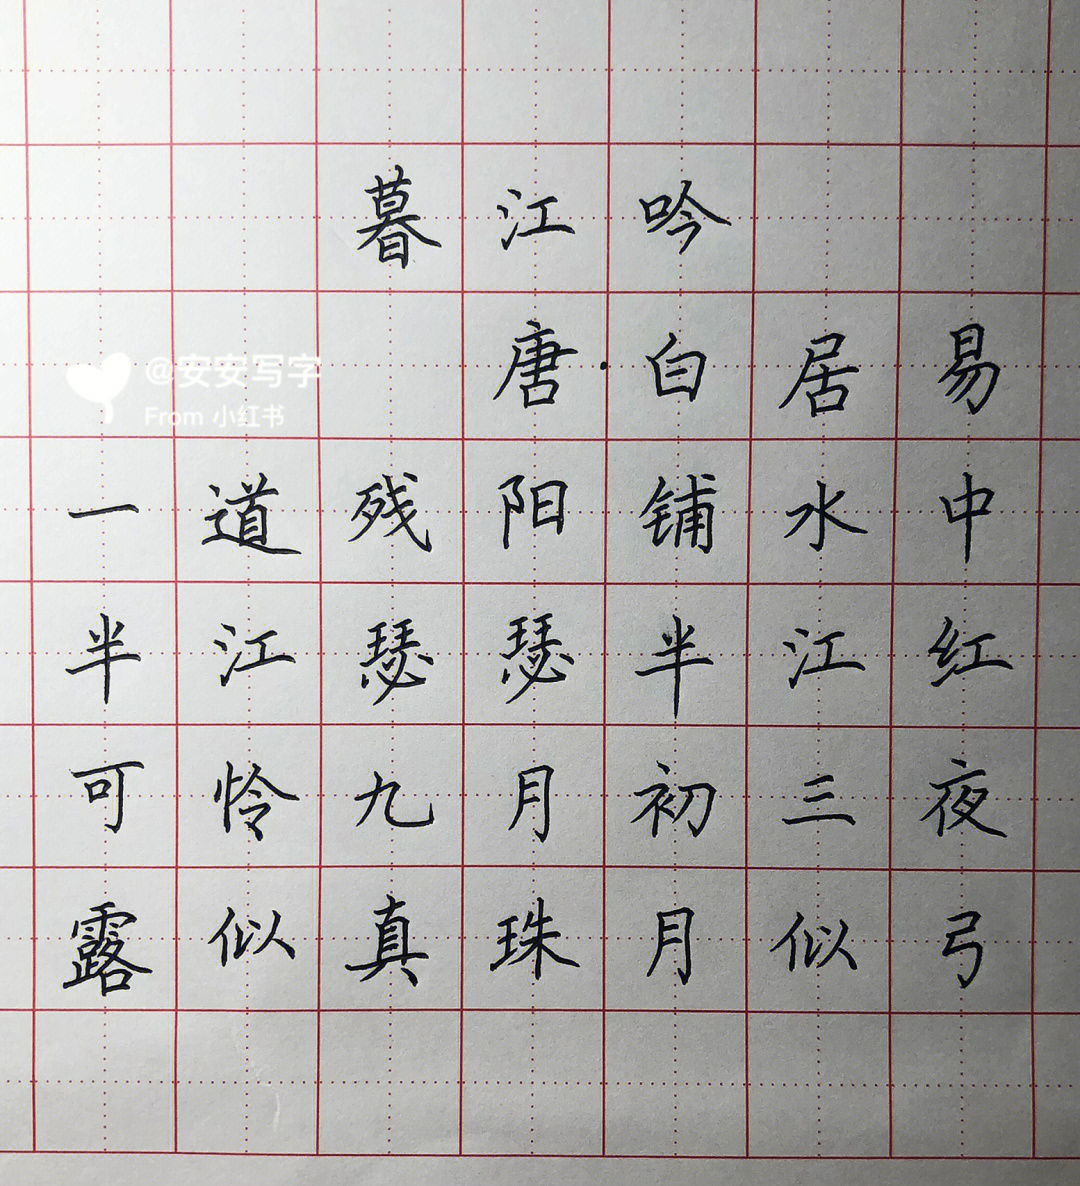 暮江吟
唐·白居易
@安安写字
From 小红书
一道残阳铺水中
半江瑟瑟半江红
可怜九月初三夜
露似真珠月似弓